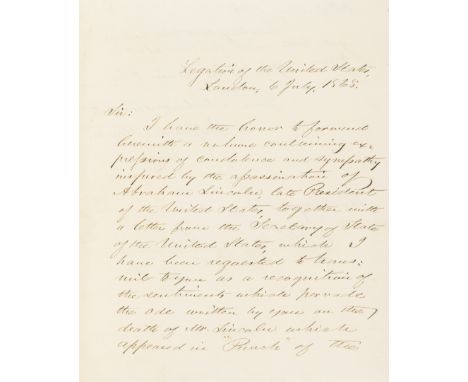 Legation of the United States,
London, 6 July, 1868.
Sir:
I have the honor to forward
herewith a volume containing ex-
pressions of condolence and sympathy
inspired by the assassination of
Abraham Lincoln, late President
of the United States, together with
a letter from the Secretary of State
of the United States, which I
have been requested to trans-
mit to you as a recognition of
the sentiments which pervade
the ode written by you on the
death of Mr Lincoln which
appeared in "Punch" of the